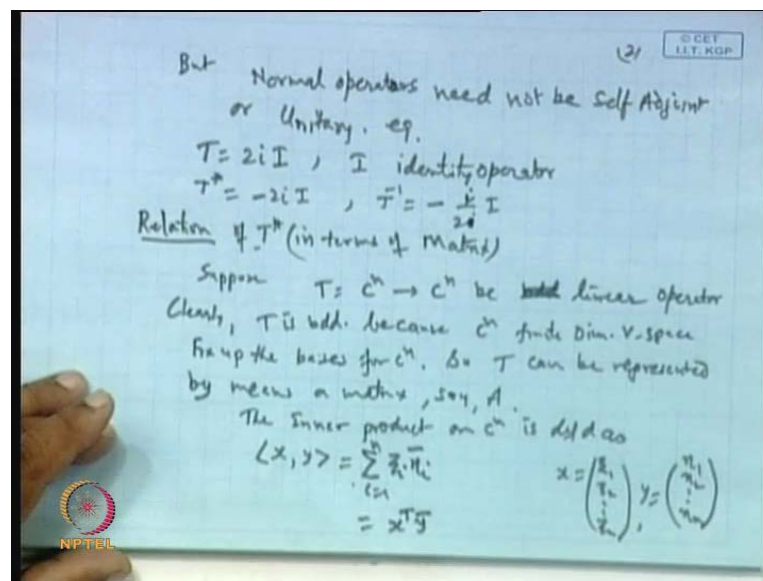 (2)
© CET
I.I.T. KGP
But Normal operators need not be Self Adjoint
or Unitary. eg.
T = 2i I , I identity operator
T* = -2i I , T⁻¹ = - i/2 I
Relation of T* (in terms of Matrix)
Suppose T: Cⁿ → Cⁿ be linear operator
Clearly, T is bdd. because Cⁿ finite Dim. V-space
Fix up the bases for Cⁿ. So T can be represented
by means a matrix, say, A.
The Inner product on Cⁿ is dfd as
⟨x, y⟩ = Σ_{i=1}^{n} ξᵢ η̄ᵢ x = (ξ₁ ξ₂ ⋮ ξₙ), y = (η₁ η₂ ⋮ ηₙ)
= xᵀȳ
NPTEL